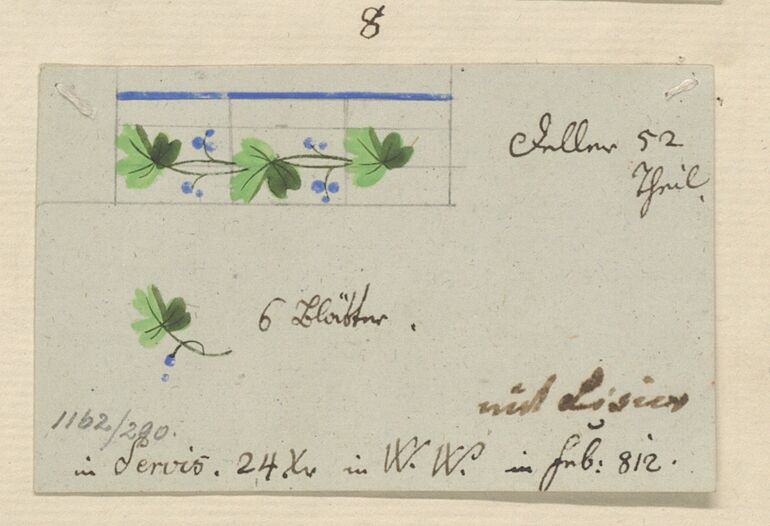 8
Teller 52
Theil.
6 Blätter.
mit Lisier
1162/290.
in Servis. 24 Xr in W. W. in Feb: 812.